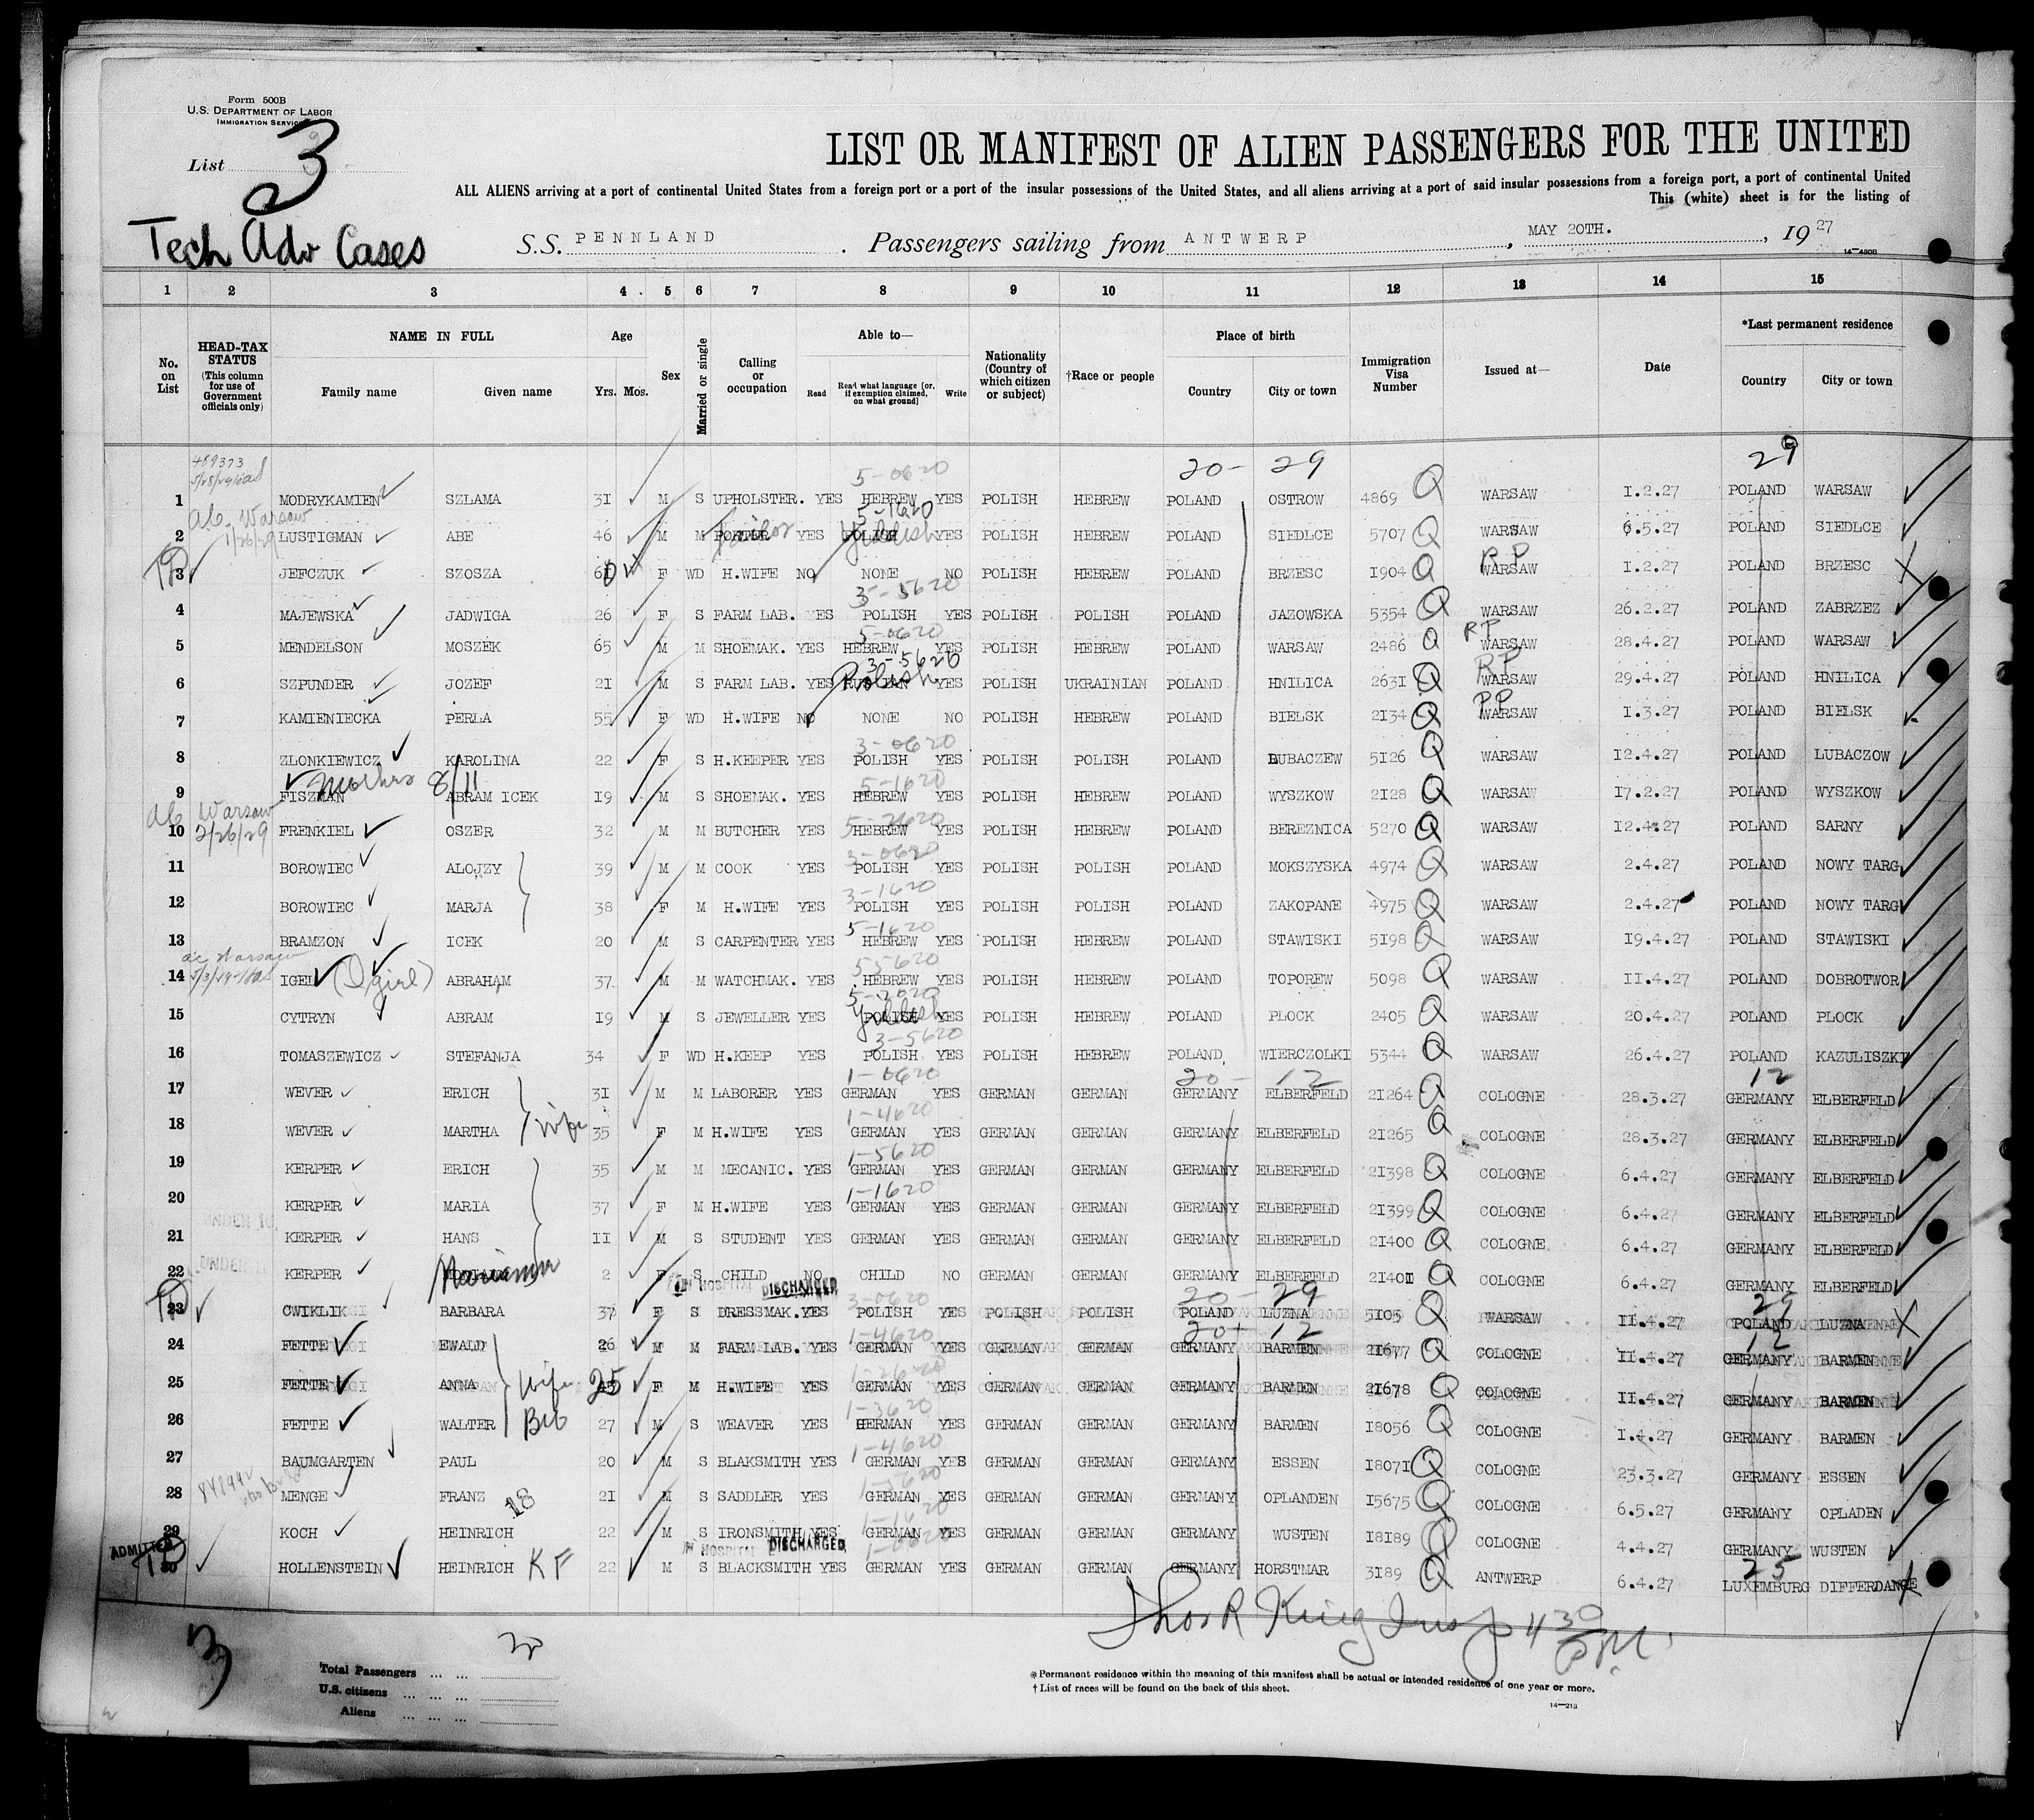 Form 500B
U.S. DEPARTMENT OF LABOR
IMMIGRATION SERVICE
List 3
LIST OR MANIFEST OF ALIEN PASSENGERS FOR THE UNITED
ALL ALIENS arriving at a port of continental United States from a foreign port or a port of the insular possessions of the United States, and all aliens arriving at a port of said insular possessions from a foreign port, a port of continental United
This (white) sheet is for the listing of
Tech Adv Cases
S.S. PENNLAND . Passengers sailing from ANTWERP , MAY 20TH. , 1927
14—430B
1 2 3 4 5 6 7 8 9 10 11 12 13 14 15
No. on List HEAD-TAX STATUS (This column for use of Government officials only) NAME IN FULL Family name Given name Age Yrs. Mos. Sex Married or single Calling or occupation Able to— Read Read what language [or, if exemption claimed, on what ground] Write Nationality (Country of which citizen or subject) †Race or people Place of birth Country City or town Immigration Visa Number Issued at— Date *Last permanent residence Country City or town
489373 5-0620 20- 29 29
1 MODRYKAMIEN SZLAMA 31 M S UPHOLSTER. YES HEBREW YES POLISH HEBREW POLAND OSTROW 4869 Q WARSAW 1.2.27 POLAND WARSAW
Warsaw 1/26/29 5-1620
2 LUSTIGMAN ABE 46 M M Tailor YES Yiddish YES POLISH HEBREW POLAND SIEDLCE 5707 Q WARSAW 6.5.27 POLAND SIEDLCE
3 JEFCZUK SZOSZA 60 F WD H.WIFE NO NONE NO POLISH HEBREW POLAND BRZESC 1904 Q RP WARSAW 1.2.27 POLAND BRZESC X
3-5620
4 MAJEWSKA JADWIGA 26 F S FARM LAB. YES POLISH YES POLISH POLISH POLAND JAZOWSKA 5354 Q WARSAW 26.2.27 POLAND ZABRZEZ
5-0620
5 MENDELSON MOSZEK 65 M M SHOEMAK. YES HEBREW YES POLISH HEBREW POLAND WARSAW 2486 Q RP WARSAW 28.4.27 POLAND WARSAW
3-5620
6 SZPUNDER JOZEF 21 M S FARM LAB. YES Polish YES POLISH UKRAINIAN POLAND HNILICA 2631 Q RP WARSAW 29.4.27 POLAND HNILICA
7 KAMIENIECKA PERLA 55 F WD H.WIFE NO NONE NO POLISH HEBREW POLAND BIELSK 2134 Q PP WARSAW 1.3.27 POLAND BIELSK
3-0620
8 ZLONKIEWICZ KAROLINA 22 F S H.KEEPER YES POLISH YES POLISH POLISH POLAND LUBACZEW 5126 Q WARSAW 12.4.27 POLAND LUBACZOW
Mother 8/11 5-1620
9 FISZMAN ABRAM ICEK 19 M S SHOEMAK. YES HEBREW YES POLISH HEBREW POLAND WYSZKOW 2128 Q WARSAW 17.2.27 POLAND WYSZKOW
Warsaw 2/26/29 5-2620
10 FRENKIEL OSZER 32 M M BUTCHER YES HEBREW YES POLISH HEBREW POLAND BEREZNICA 5270 Q WARSAW 12.4.27 POLAND SARNY
3-0620
11 BOROWIEC ALOJZY 39 M M COOK YES POLISH YES POLISH POLISH POLAND MOKSZYSKA 4974 Q WARSAW 2.4.27 POLAND NOWY TARG
3-1620
12 BOROWIEC MARJA 38 F M H.WIFE YES POLISH YES POLISH POLISH POLAND ZAKOPANE 4975 Q WARSAW 2.4.27 POLAND NOWY TARG
5-1620
13 BRAMZON ICEK 20 M S CARPENTER YES HEBREW YES POLISH HEBREW POLAND STAWISKI 5198 Q WARSAW 19.4.27 POLAND STAWISKI
Warsaw 5-5620
14 IGEL (Igiel) ABRAHAM 37 M M WATCHMAK. YES HEBREW YES POLISH HEBREW POLAND TOPOREW 5098 Q WARSAW 11.4.27 POLAND DOBROTWOR
5-2620
15 CYTRYN ABRAM 19 M S JEWELLER YES Yiddish YES POLISH HEBREW POLAND PLOCK 2405 Q WARSAW 20.4.27 POLAND PLOCK
3-5620
16 TOMASZEWICZ STEFANJA 34 F WD H.KEEP YES POLISH YES POLISH HEBREW POLAND WIERCZOLKI 5344 Q WARSAW 26.4.27 POLAND KAZULISZKI
1-0620 20- 12 12
17 WEVER ERICH 31 M M LABORER YES GERMAN YES GERMAN GERMAN GERMANY ELBERFELD 21264 Q COLOGNE 28.3.27 GERMANY ELBERFELD
1-4620
18 WEVER MARTHA wife 35 F M H.WIFE YES GERMAN YES GERMAN GERMAN GERMANY ELBERFELD 21265 Q COLOGNE 28.3.27 GERMANY ELBERFELD
1-5620
19 KERPER ERICH 35 M M MECANIC. YES GERMAN YES GERMAN GERMAN GERMANY ELBERFELD 21398 Q COLOGNE 6.4.27 GERMANY ELBERFELD
1-1620
20 KERPER MARIA 37 F M H.WIFE YES GERMAN YES GERMAN GERMAN GERMANY ELBERFELD 21399 Q COLOGNE 6.4.27 GERMANY ELBERFELD
UNDER 16
21 KERPER HANS 11 M S STUDENT YES GERMAN YES GERMAN GERMAN GERMANY ELBERFELD 21400 Q COLOGNE 6.4.27 GERMANY ELBERFELD
UNDER 16
22 KERPER Marianna 2 F S CHILD NO CHILD NO GERMAN GERMAN GERMANY ELBERFELD 21401 Q COLOGNE 6.4.27 GERMANY ELBERFELD
IN HOSPITAL DISCHARGED 3-0620 20- 29 29
23 CWIKLIK BARBARA 37 F S DRESSMAK. YES POLISH YES POLISH POLISH POLAND LUZNA 5105 Q WARSAW 11.4.27 POLAND LUZNA X
1-4620 20- 12 12
24 FETTE EWALD 26 M M FARM LAB. YES GERMAN YES GERMAN GERMAN GERMANY BARMEN 21677 Q COLOGNE 11.4.27 GERMANY BARMEN
1-2620
25 FETTE ANNA Wife 25 F M H.WIFE YES GERMAN YES GERMAN GERMAN GERMANY BARMEN 21678 Q COLOGNE 11.4.27 GERMANY BARMEN
1-3620
26 FETTE WALTER Bro 27 M S WEAVER YES GERMAN YES GERMAN GERMAN GERMANY BARMEN 18056 Q COLOGNE 1.4.27 GERMANY BARMEN
1-4620
27 BAUMGARTEN PAUL 20 M S BLAKSMITH YES GERMAN YES GERMAN GERMAN GERMANY ESSEN 18071 Q COLOGNE 23.3.27 GERMANY ESSEN
1-5620
28 MENGE FRANZ 18 21 M S SADDLER YES GERMAN YES GERMAN GERMAN GERMANY OPLANDEN 15675 Q COLOGNE 6.5.27 GERMANY OPLADEN
1-1620
29 KOCH HEINRICH 22 M S IRONSMITH YES GERMAN YES GERMAN GERMAN GERMANY WUSTEN 18189 Q COLOGNE 4.4.27 GERMANY WUSTEN
ADMITTED IN HOSPITAL DISCHARGED 1-0620 25
30 HOLLENSTEIN HEINRICH KF 22 M S BLACKSMITH YES GERMAN YES GERMAN GERMAN GERMANY HORSTMAR 3189 Q ANTWERP 6.4.27 LUXEMBURG DIFFERDANGE X
Thos R King Insp 430 P.M.
3
Total Passengers ... ...
U.S. citizens ... ... ...
Aliens ... ... ...
*Permanent residence within the meaning of this manifest shall be actual or intended residence of one year or more.
†List of races will be found on the back of this sheet.
14—213